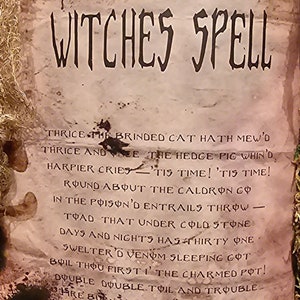 WITCHES SPELL
THRICE THE BRINDED CAT HATH MEW'D
THRICE AND THE HEDGE PIG WHIN'D
HARPIER CRIES — 'TIS TIME! 'TIS TIME!
ROUND ABOUT THE CALDRON GO
IN THE POISON'D ENTRAILS THROW —
TOAD THAT UNDER COLD STONE
DAYS AND NIGHTS HAS THIRTY ONE
SWELTER'D VENOM SLEEPING GOT
BOIL THOU FIRST I' THE CHARMED POT!
DOUBLE DOUBLE TOIL AND TROUBLE